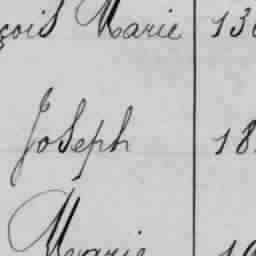 çois Marie 13
Joseph 18
Marie 19